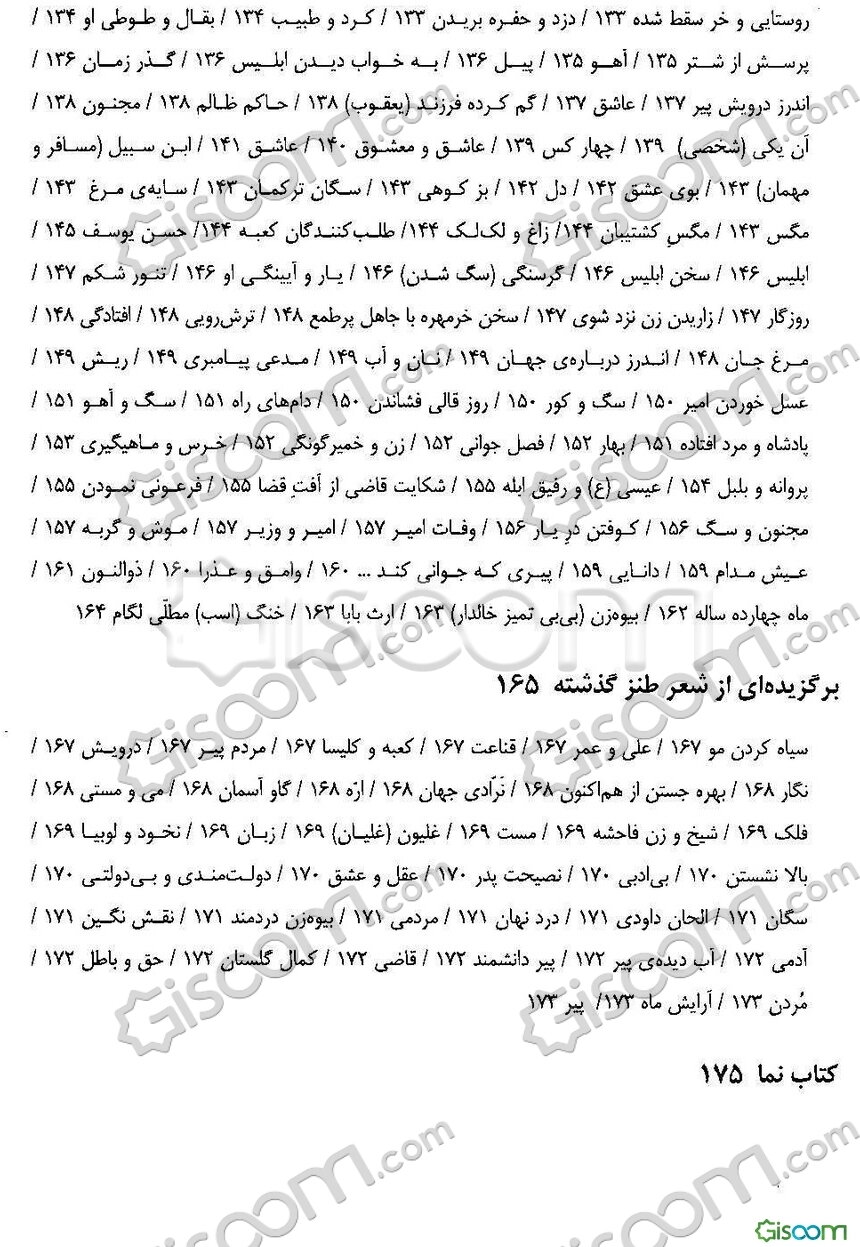 روستایی و خر سقط شده ۱۳۳ / دزد و حفره بریدن ۱۳۳ / کرد و طبیب ۱۳۴ / بقال و طوطی او ۱۳۴ /
پرسش از شتر ۱۳۵ / آهو ۱۳۵ / پیل ۱۳۶ / به خواب دیدن ابلیس ۱۳۶ / گذر زمان ۱۳۶ /
اندرز درویش پیر ۱۳۷ / عاشق ۱۳۷ / گم کرده فرزند (یعقوب) ۱۳۸ / حاکم ظالم ۱۳۸ / مجنون ۱۳۸ /
آن یکی (شخصی) ۱۳۹ / چهار کس ۱۳۹ / عاشق و معشوق ۱۴۰ / عاشق ۱۴۱ / ابن سبیل (مسافر و
مهمان) ۱۴۳ / بوی عشق ۱۴۲ / دل ۱۴۲ / بز کوهی ۱۴۳ / سگان ترکمان ۱۴۳ / سایه‌ی مرغ ۱۴۳ /
مگس ۱۴۳ / مگس کشتیبان ۱۴۴/ زاغ و لک‌لک ۱۴۴/ طلب‌کنندگان کعبه ۱۴۴/ حسن یوسف ۱۴۵ /
ابلیس ۱۴۶ / سخن ابلیس ۱۴۶ / گرسنگی (سگ شدن) ۱۴۶ / یار و آیینگی او ۱۴۶ / تنور شکم ۱۴۷ /
روزگار ۱۴۷ / زاریدن زن نزد شوی ۱۴۷ / سخن خرمهره با جاهل پرطمع ۱۴۸ / ترش‌رویی ۱۴۸ / افتادگی ۱۴۸ /
مرغ جان ۱۴۸ / اندرز درباره‌ی جهان ۱۴۹ / نان و آب ۱۴۹ / مدعی پیامبری ۱۴۹ / ریش ۱۴۹ /
عسل خوردن امیر ۱۵۰ / سگ و کور ۱۵۰ / روز قالی فشاندن ۱۵۰ / دام‌های راه ۱۵۱ / سگ و آهو ۱۵۱ /
پادشاه و مرد افتاده ۱۵۱ / بهار ۱۵۲ / فصل جوانی ۱۵۲ / زن و خمیرگونگی ۱۵۲ / خرس و ماهیگیری ۱۵۳ /
پروانه و بلبل ۱۵۴ / عیسی (ع) و رفیق ابله ۱۵۵ / شکایت قاضی از آفتِ قضا ۱۵۵ / فرعونی نمودن ۱۵۵ /
مجنون و سگ ۱۵۶ / کوفتن درِ یار ۱۵۶ / وفات امیر ۱۵۷ / امیر و وزیر ۱۵۷ / موش و گربه ۱۵۷ /
عیش مدام ۱۵۹ / دانایی ۱۵۹ / پیری که جوانی کند ... ۱۶۰ / وامق و عذرا ۱۶۰ / ذوالنون ۱۶۱ /
ماه چهارده ساله ۱۶۲ / بیوه‌زن (بی‌بی تمیز خالدار) ۱۶۳ / ارث بابا ۱۶۳ / خنگ (اسب) مطلّی لگام ۱۶۴
برگزیده‌ای از شعر طنز گذشته ۱۶۵
سیاه کردن مو ۱۶۷ / علی و عمر ۱۶۷ / قناعت ۱۶۷ / کعبه و کلیسا ۱۶۷ / مردم پیر ۱۶۷ / درویش ۱۶۷ /
نگار ۱۶۸ / بهره جستن از هم‌اکنون ۱۶۸ / نَرّادی جهان ۱۶۸ / ارّه ۱۶۸ / گاو آسمان ۱۶۸ / می و مستی ۱۶۸ /
فلک ۱۶۹ / شیخ و زن فاحشه ۱۶۹ / مست ۱۶۹ / غلیون (غلیان) ۱۶۹ / زبان ۱۶۹ / نخود و لوبیا ۱۶۹ /
بالا نشستن ۱۷۰ / بی‌ادبی ۱۷۰ / نصیحت پدر ۱۷۰ / عقل و عشق ۱۷۰ / دولت‌مندی و بی‌دولتی ۱۷۰ /
سگان ۱۷۱ / الحان داودی ۱۷۱ / درد نهان ۱۷۱ / مردمی ۱۷۱ / بیوه‌زن دردمند ۱۷۱ / نقش نگین ۱۷۱ /
آدمی ۱۷۲ / آب دیده‌ی پیر ۱۷۲ / پیر دانشمند ۱۷۲ / قاضی ۱۷۲ / کمال گلستان ۱۷۲ / حق و باطل ۱۷۲ /
مُردن ۱۷۳ / آرایش ماه ۱۷۳/ پیر ۱۷۳
کتاب نما ۱۷۵
Gisoom